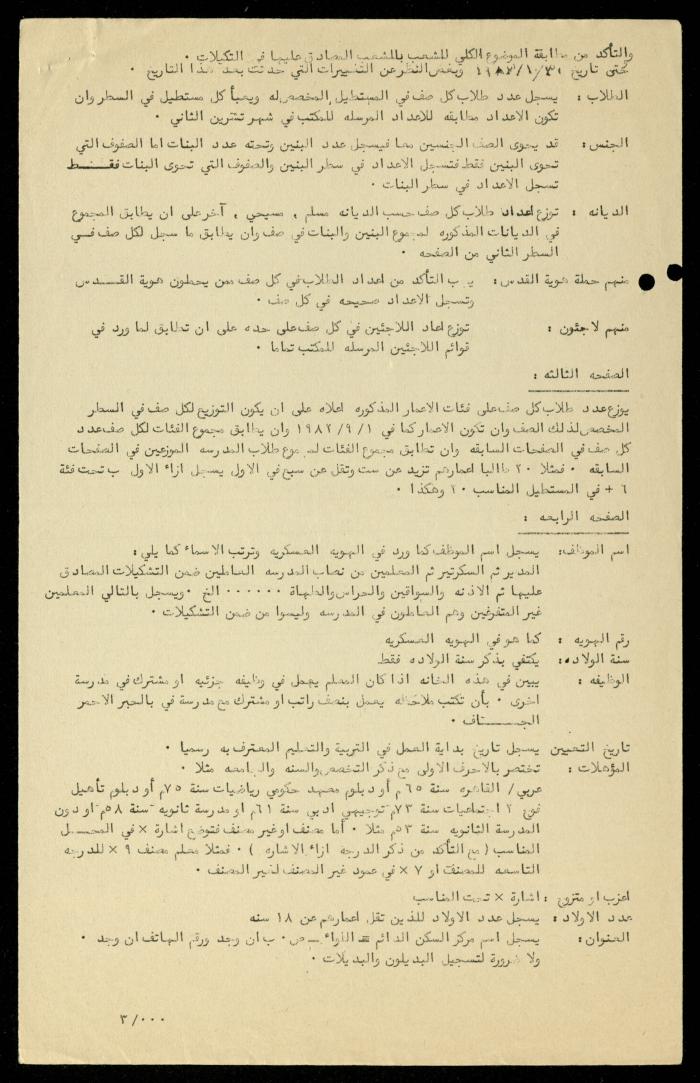 والتأكد من مطابقة الموضوع الكلي للشعب بالشعب المصادق عليها في التكيلات ٠
حتى تاريخ ١٩٨٢/١/٣١ وبغض النظر عن التغييرات التي حدثت بعد هذا التاريخ ٠
الطلاب : يسجل عدد طلاب كل صف في المستطيل المخصص له ويعبأ كل مستطيل في السطر وان
تكون الاعداد مطابقه للاعداد المرسله للمكتب في شهر تشرين الثاني ٠
الجنس : قد يحوى الصف الجنسين معا فيسجل عدد البنين وتحته عدد البنات اما الصفوف التي
تحوى البنين فقط فتسجل الاعداد في سطر البنين والصفوف التي تحوى البنات فقـــط
تسجل الاعداد في سطر البنات ٠
الديانه : توزع اعداد طلاب كل صف حسب الديانه مسلم , مسيحي , آخر على ان يطابق المجموع
في الديانات المذكوره لمجموع البنين والبنات في صف وان يطابق ما سجل لكل صف فـي
السطر الثاني من الصفحه ٠
منهم حملة هوية القدس : يجب التأكد من اعداد الطلاب في كل صف ممن يحملون هوية القــدس
وتسجل الاعداد صحيحه في كل صف ٠
منهم لاجئون : توزع اعاد اللاجئين في كل صف على حده على ان تطابق لما ورد في
قوائم اللاجئين المرسله للمكتب تماما ٠
الصفحه الثالثه :
يوزع عدد طلاب كل صف على فئات الاعمار المذكوره اعلاه على ان يكون التوزيع لكل صف في السطر
المخصص لذلك الصف وان تكون الاعمار كما في ١٩٨٢/٩/١ وان يطابق مجموع الفئات لكل صف عدد
كل صف في الصفحات السابقه وان تطابق مجموع الفئات لمجموع طلاب المدرسه الموزعين في الصفحات
السابقه ٠ فمثلا ٢٠ طالبا اعمارهم تزيد عن ست وتقل عن سبع في الاول يسجل ازاء الاول ب تحت فئة
٦ + في المستطيل المناسب ٢٠ وهكذا ٠
الصفحه الرابعه :
اسم الموظف : يسجل اسم الموظف كما ورد في الهويه العسكريه وترتب الاسماء كما يلي :
المدير ثم السكرتير ثم المعلمين من نصاب المدرسه العاملين ضمن التشكيلات المصادق
عليها ثم الاذنه والسواقين والحراس والطهاة ٠٠٠٠٠٠ الخ ٠ ويسجل بالتالي المعلمين
غير المتفرغين وهم العاملون في المدرسه وليسوا من ضمن التشكيلات ٠
رقم الهويه : كما هو في الهويه العسكريه
سنة الولاده : يكتفي بذكر سنة الولاده فقط
الوظيفه : يبين في هذه الخانه اذا كان المعلم يعمل في وظيفه جزئيه او مشترك في مدرسة
اخرى ٠ بأن تكتب ملاحظه يعمل بنصف راتب او مشترك مع مدرسة في بالحبر الاحمر
الجـــاف ٠
تاريخ التعيين يسجل تاريخ بداية العمل في التربية والتعليم المعترف به رسميا ٠
المؤهلات : تختصر بالاحرف الاولى مع ذكر التخصص والسنه والجامعه مثلا ٠
عربي/ القاهره سنة ٦٥م أو دبلوم معهد حكومي رياضيات سنة ٧٥م أو دبلوم تأهيل
فوج ٢ اجتماعيات سنة ٧٣م توجيهي ادبي سنة ٦١م او مدرسة ثانويه سنة ٥٨م او دون
المدرسة الثانويه سنة ٥٣م مثلا ٠ أما مصنف او غير مصنف فتوضع اشارة × في المحــل
المناسب ( مع التأكد من ذكر الدرجه ازاء الاشاره ) ٠ فمثلا معلم مصنف ٩ × للدرجه
التاسعه للمصنف او ٧ × في عمود غير المصنف لغير المصنف ٠
اعزب او متزوج : اشارة × تحت المناسب
عدد الاولاد : يسجل عدد الاولاد للذين تقل اعمارهم عن ١٨ سنه
العنوان : يسجل اسم مركز السكن الدائم = اللواء ص٠ ب ان وجد ورقم الهاتف ان وجد ٠
ولا ضرورة لتسجيل البديلون والبديلات ٠
٣/٠٠٠